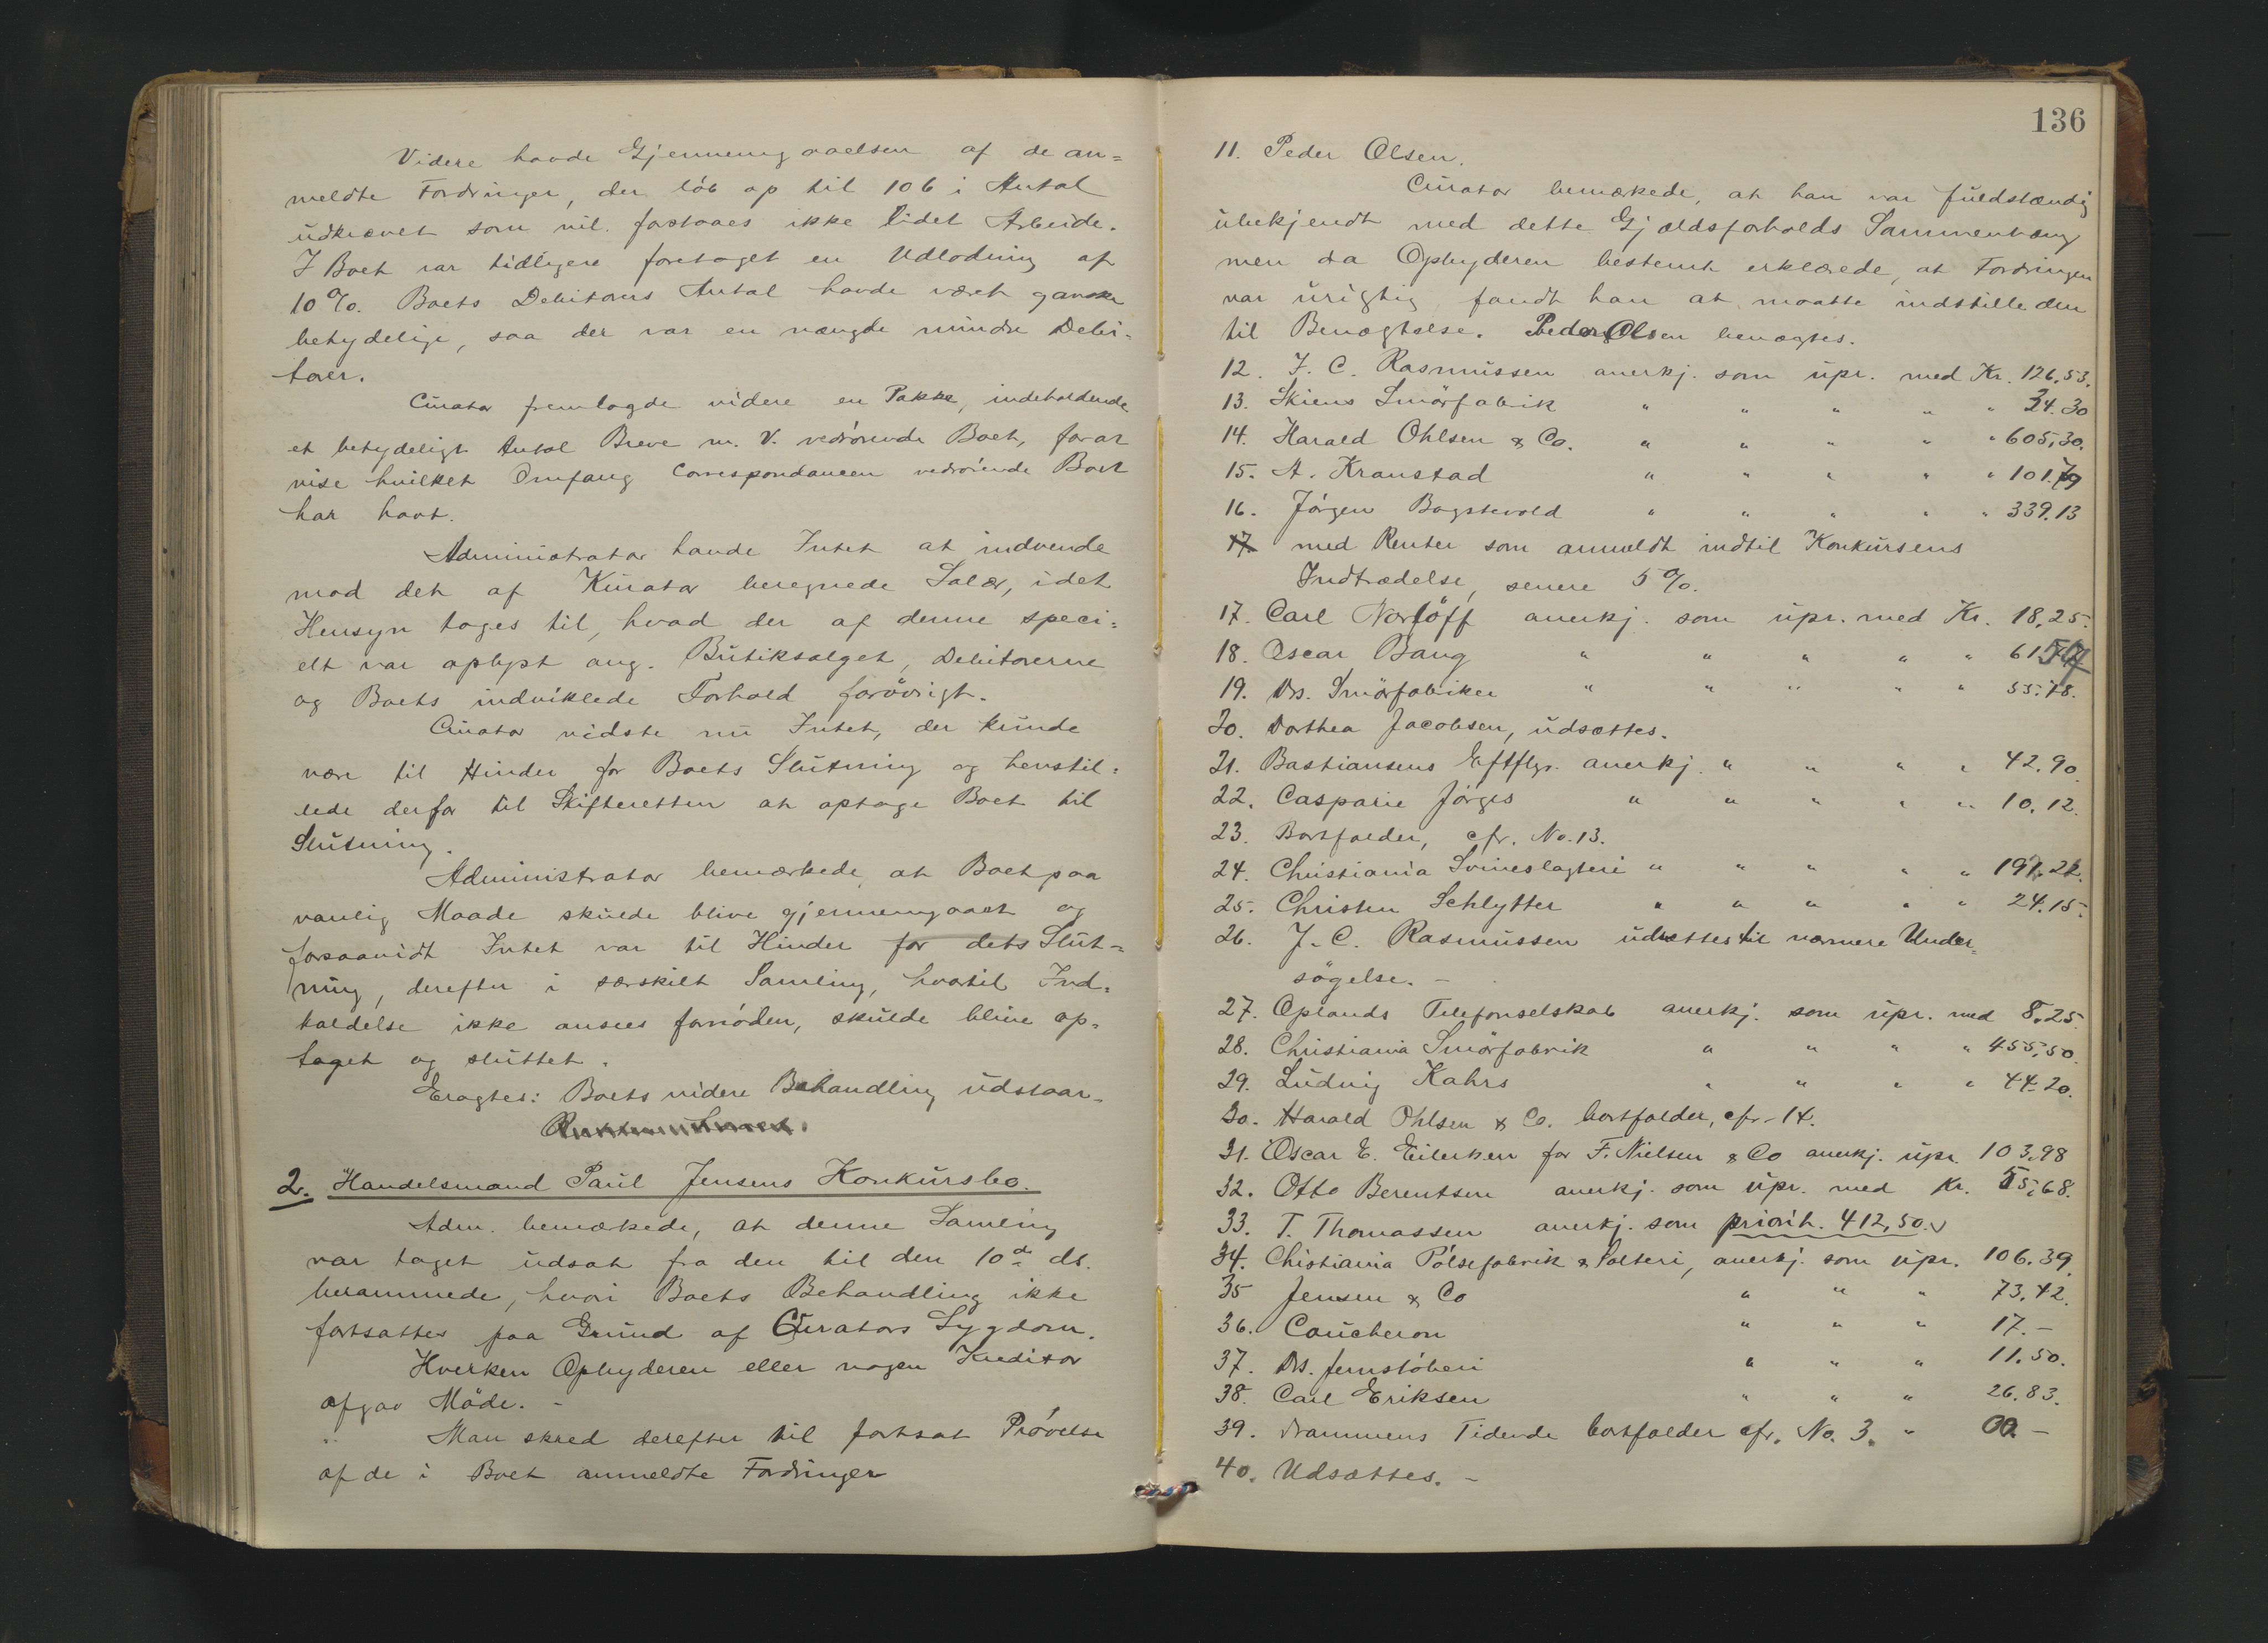 Videre havde Gjennemgaaelsen af de an=
meldte Fordringer, der löb op til 106 i Antal
udkrævet som vil forstaaes ikke lidet Arbeide.
I Boet var tidligere foretaget en Udlodning af
10%. Boets Debitorers Antal havde været ganske
betydelige, saa der var en mængde mindre Debi-
torer.
Curator fremlagde videre en Pakke, indeholdende
et betydeligt Antal Breve m. V. vedrörende Boet, for at
vise hvilket Omfang Correspondancen vedrörende Boet
har havt.
Administrator havde Intet at indvende
mod det af Kurator beregnede Salær, idet
Hensyn toges til, hvad der af denne speci=
elt var oplyst ang. Butiksalget, Debitorerne
og Boets indviklede Forhold forövrigt.
Curator vidste nu Intet, der kunde
være til Hinder for Boets Slutning og henstil=
lede derfor til Skifteretten at optage Boet til
Slutning.
Administrator bemærkede, at Boet paa
vanlig Maade skulde blive gjennemgaaet og
forsaavidt Intet var til Hinder for dets Slut=
ning, derefter i særskilt Samling, hvortil Ind=
kaldelse ikke ansees fornöden, skulde blive op=
taget og sluttet.
Eragtes: Boets videre Behandling udstaar.
2. Handelsmand Paul Jensens Konkursbo.
Adm. bemærkede, at denne Samling
var taget udsat fra den til den 10de ds.
berammede, hvori Boets Behandling ikke
fortsattes paa Grund af Curators Sygdom.
Hverken Opbyderen eller nogen Kreditor
afgav Möde. -
Man skred derefter til fortsat Prövelse
af de i Boet anmeldte Fordringer
136
11. Peder Olsen.
Curator bemærkede, at han var fuldstændig
ubekjendt med dette Gjældsforholds Sammenhæng
men da Opbyderen bestemt erklærede, at Fordringen
var urigtig fandt han at maatte indstille den
til Benægtelse. Peder Olsen benægtes.
12. J. C. Rasmussen anerkj. som upr. med Kr. 126,53.
13. Skiens Smörfabrik " " " " " 24.30
14. Harald Ohlsen & Co. " " " " " 605,30.
15. A. Kranstad " " " " " 101.79
16. Jörgen Bogstevold " " " " " 339.13
17 med Renter som anmeldt indtil Konkursens
Indtrædelse, senere 5%.
17. Carl Norlöff anerkj. som upr. med Kr. 18,25.
18. Oscar Bang " " " " " 61.
19. Drs. Smörfabriker " " " " " 55.78.
20. Dorthea Jacobsen, udsættes.
21. Bastiansens Eftflgr. anerkj. " " " " 42.90
22. Casparie Jörges " " " " " 10.12.
23. Bortfalder, cfr. No. 13.
24. Christiania Svineslagteri " " " " " 197.22.
25. Christen Schlytter " " " " " 24.15.
26. J. C. Rasmussen udsættes til nærmere Under=
sögelse. -
27. Oplands Telefonselskab anerkj. som upr. med 8,25.
28. Christiania Smörfabrik " " " " 455,50.
29. Ludvig Kahrs " " " " 44.20.
30. Harald Ohlsen & Co. bortfalder, cfr. 14.
31. Oscar E. Eilerken for F. Nielsen & Co anerkj. upr. 103.98
32. Otto Berentsen anerkj. som upr. med Kr. 55,68.
33. T. Thomassen anerkj. som priorit. 412,50.
34. Christiania Pölsefabrik & Salteri, anerkj. som upr. 106.39.
35 Jensen & Co " " " 73.42.
36. Coucheron " " " 17.-
37. Drs. Jernstöberi " " " 11.50.
38. Carl Eriksen " " " 26.83.
39. Drammens Tidende bortfalder cfr. No. 3. " 00.-
40. Udsættes. -